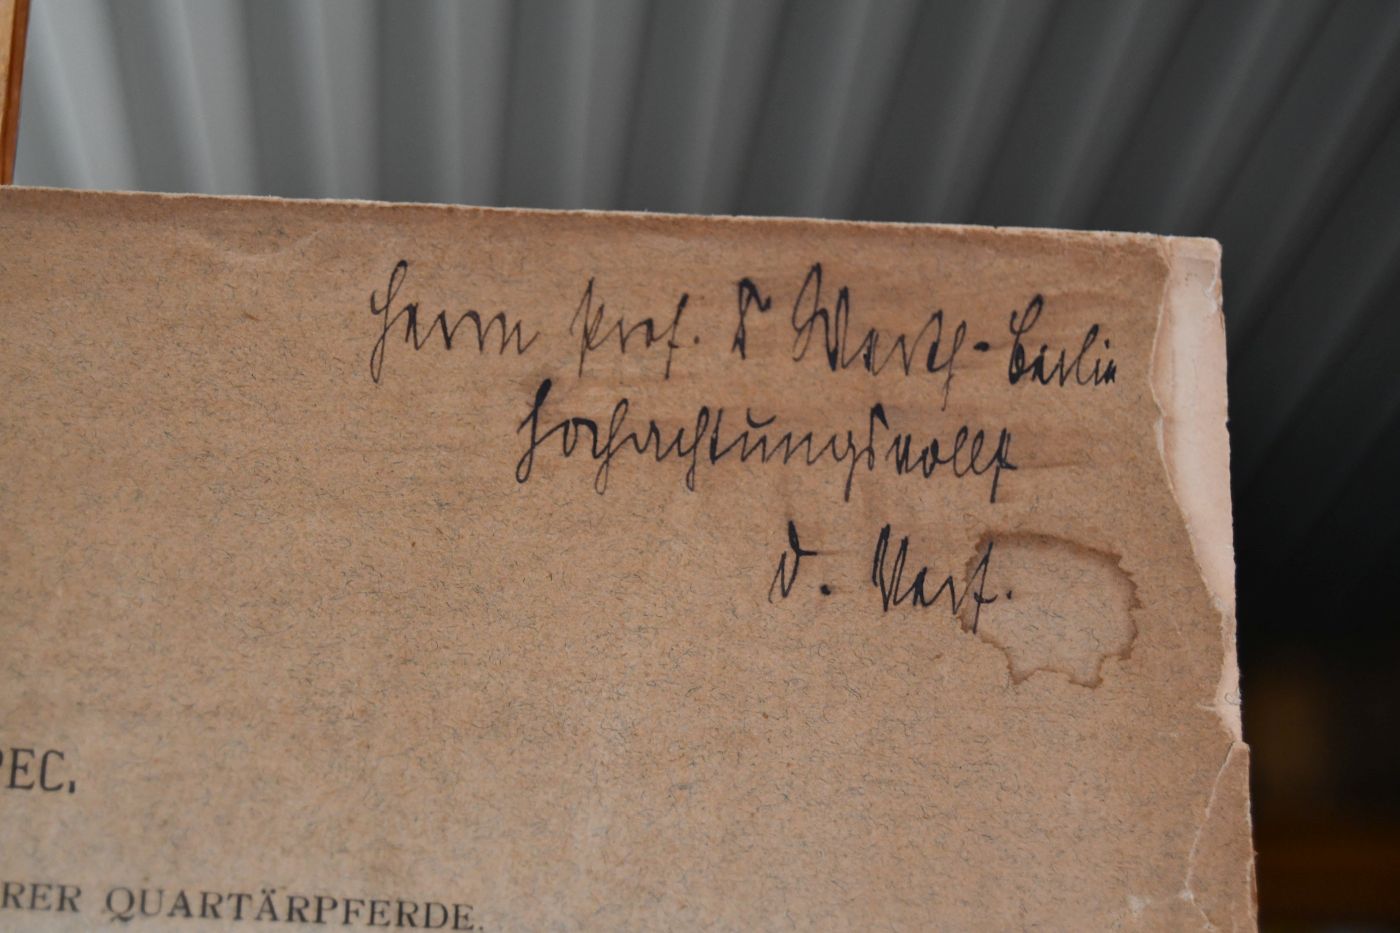 Herrn Prof. Dr Werth-Berlin
hochachtungsvollst
d. Verf.
PEC.
RER QUARTÄRPFERDE.